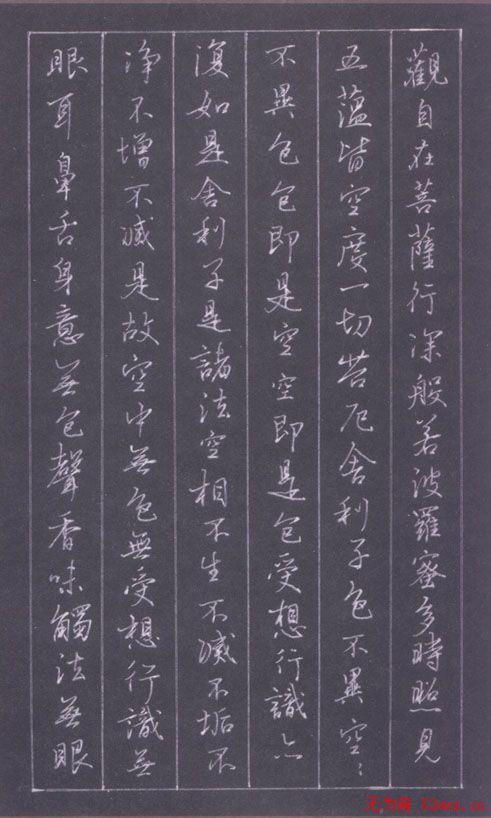 觀自在菩薩行深般若波羅蜜多時照見
五蘊皆空度一切苦厄舍利子色不異空〻
不異色色即是空空即是色受想行識亦
復如是舍利子是諸法空相不生不滅不垢不
净不增不滅是故空中無色無受想行識無
眼耳鼻舌身意無色聲香味觸法無眼